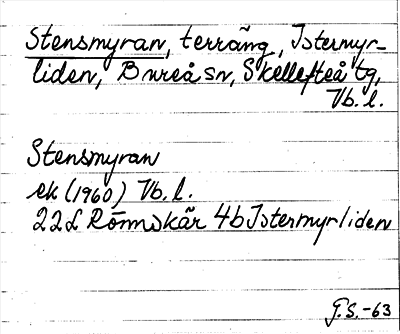 Stensmyran, terräng, Istermyr-
liden, Bureå sn, Skellefteå tg,
Vb. l.
Stensmyran
ek (1960) Vb. l.
22L Rönnskär 4b Istermyrliden
G.S.-63